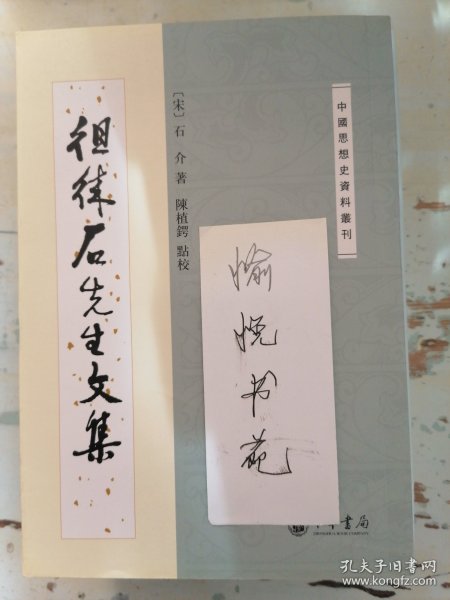 徂徕石先生文集
〔宋〕石介著 陳植鍔 點校
中國思想史資料叢刊
愉悦书苑
中華書局
孔夫子旧书网
www.kongfz.com